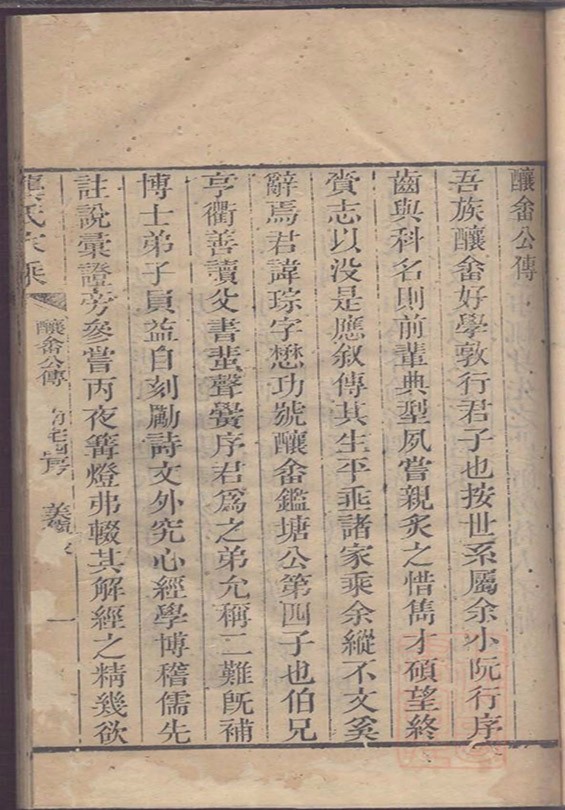 釀畬公傳
吾族釀畬好學敦行君子也按世系屬余小阮行序
齒與科名則前輩典型夙嘗親炙之惜雋才碩望終
賫志以没是應叙傳其生平垂諸家乘余縱不文奚
辭焉君諱琮字懋功號釀畬鑑塘公第四子也伯兄
亨衢善讀父書蜚聲黌序君爲之弟允稱二難旣補
博士弟子員益自刻勵詩文外究心經學博稽儒先
註說彙證旁參嘗丙夜篝燈弗輟其解經之精幾欲
氏家乘
釀畬公傳
一